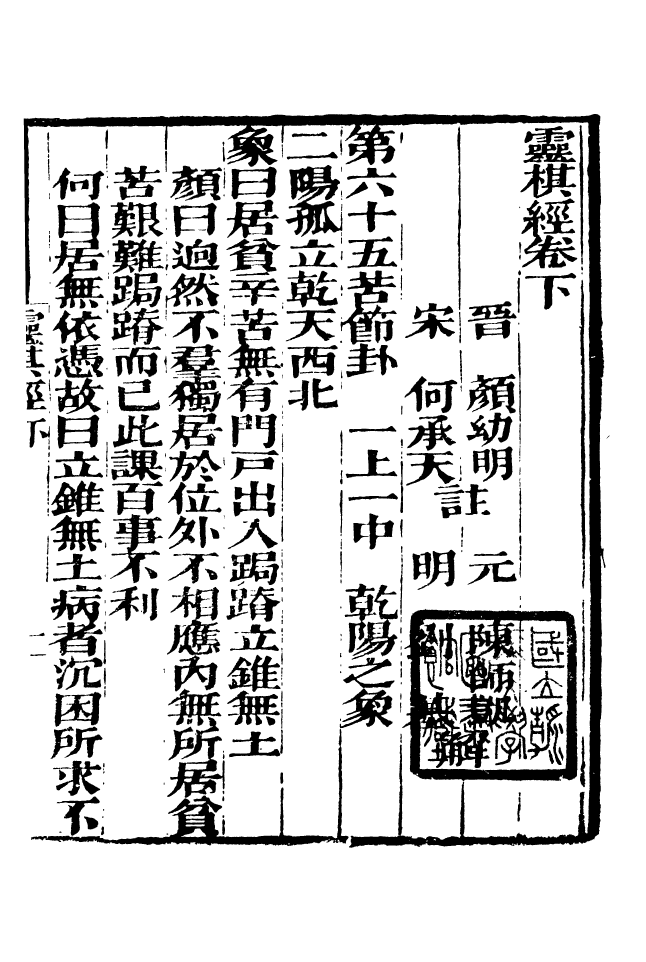 靈棋經卷下
晉　顏幼明
宋　何承天
註
元　陳師凱
明　劉基
解
第六十五苦節卦　一上一中　乾陽之象
二陽孤立乾天西北
象曰居貧辛苦無有門戸出入跼蹐立錐無土
顏曰迥然不羣獨居於位外不相應內無所居貧
苦艱難跼蹐而已此課百事不利
何曰居無依憑故曰立錐無土病者沉困所求不
靈棋經下